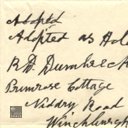 Adopted
Adopted as Hol
R D Dumbreck
Primrose Cottage
Niddry Road
Winchburgh